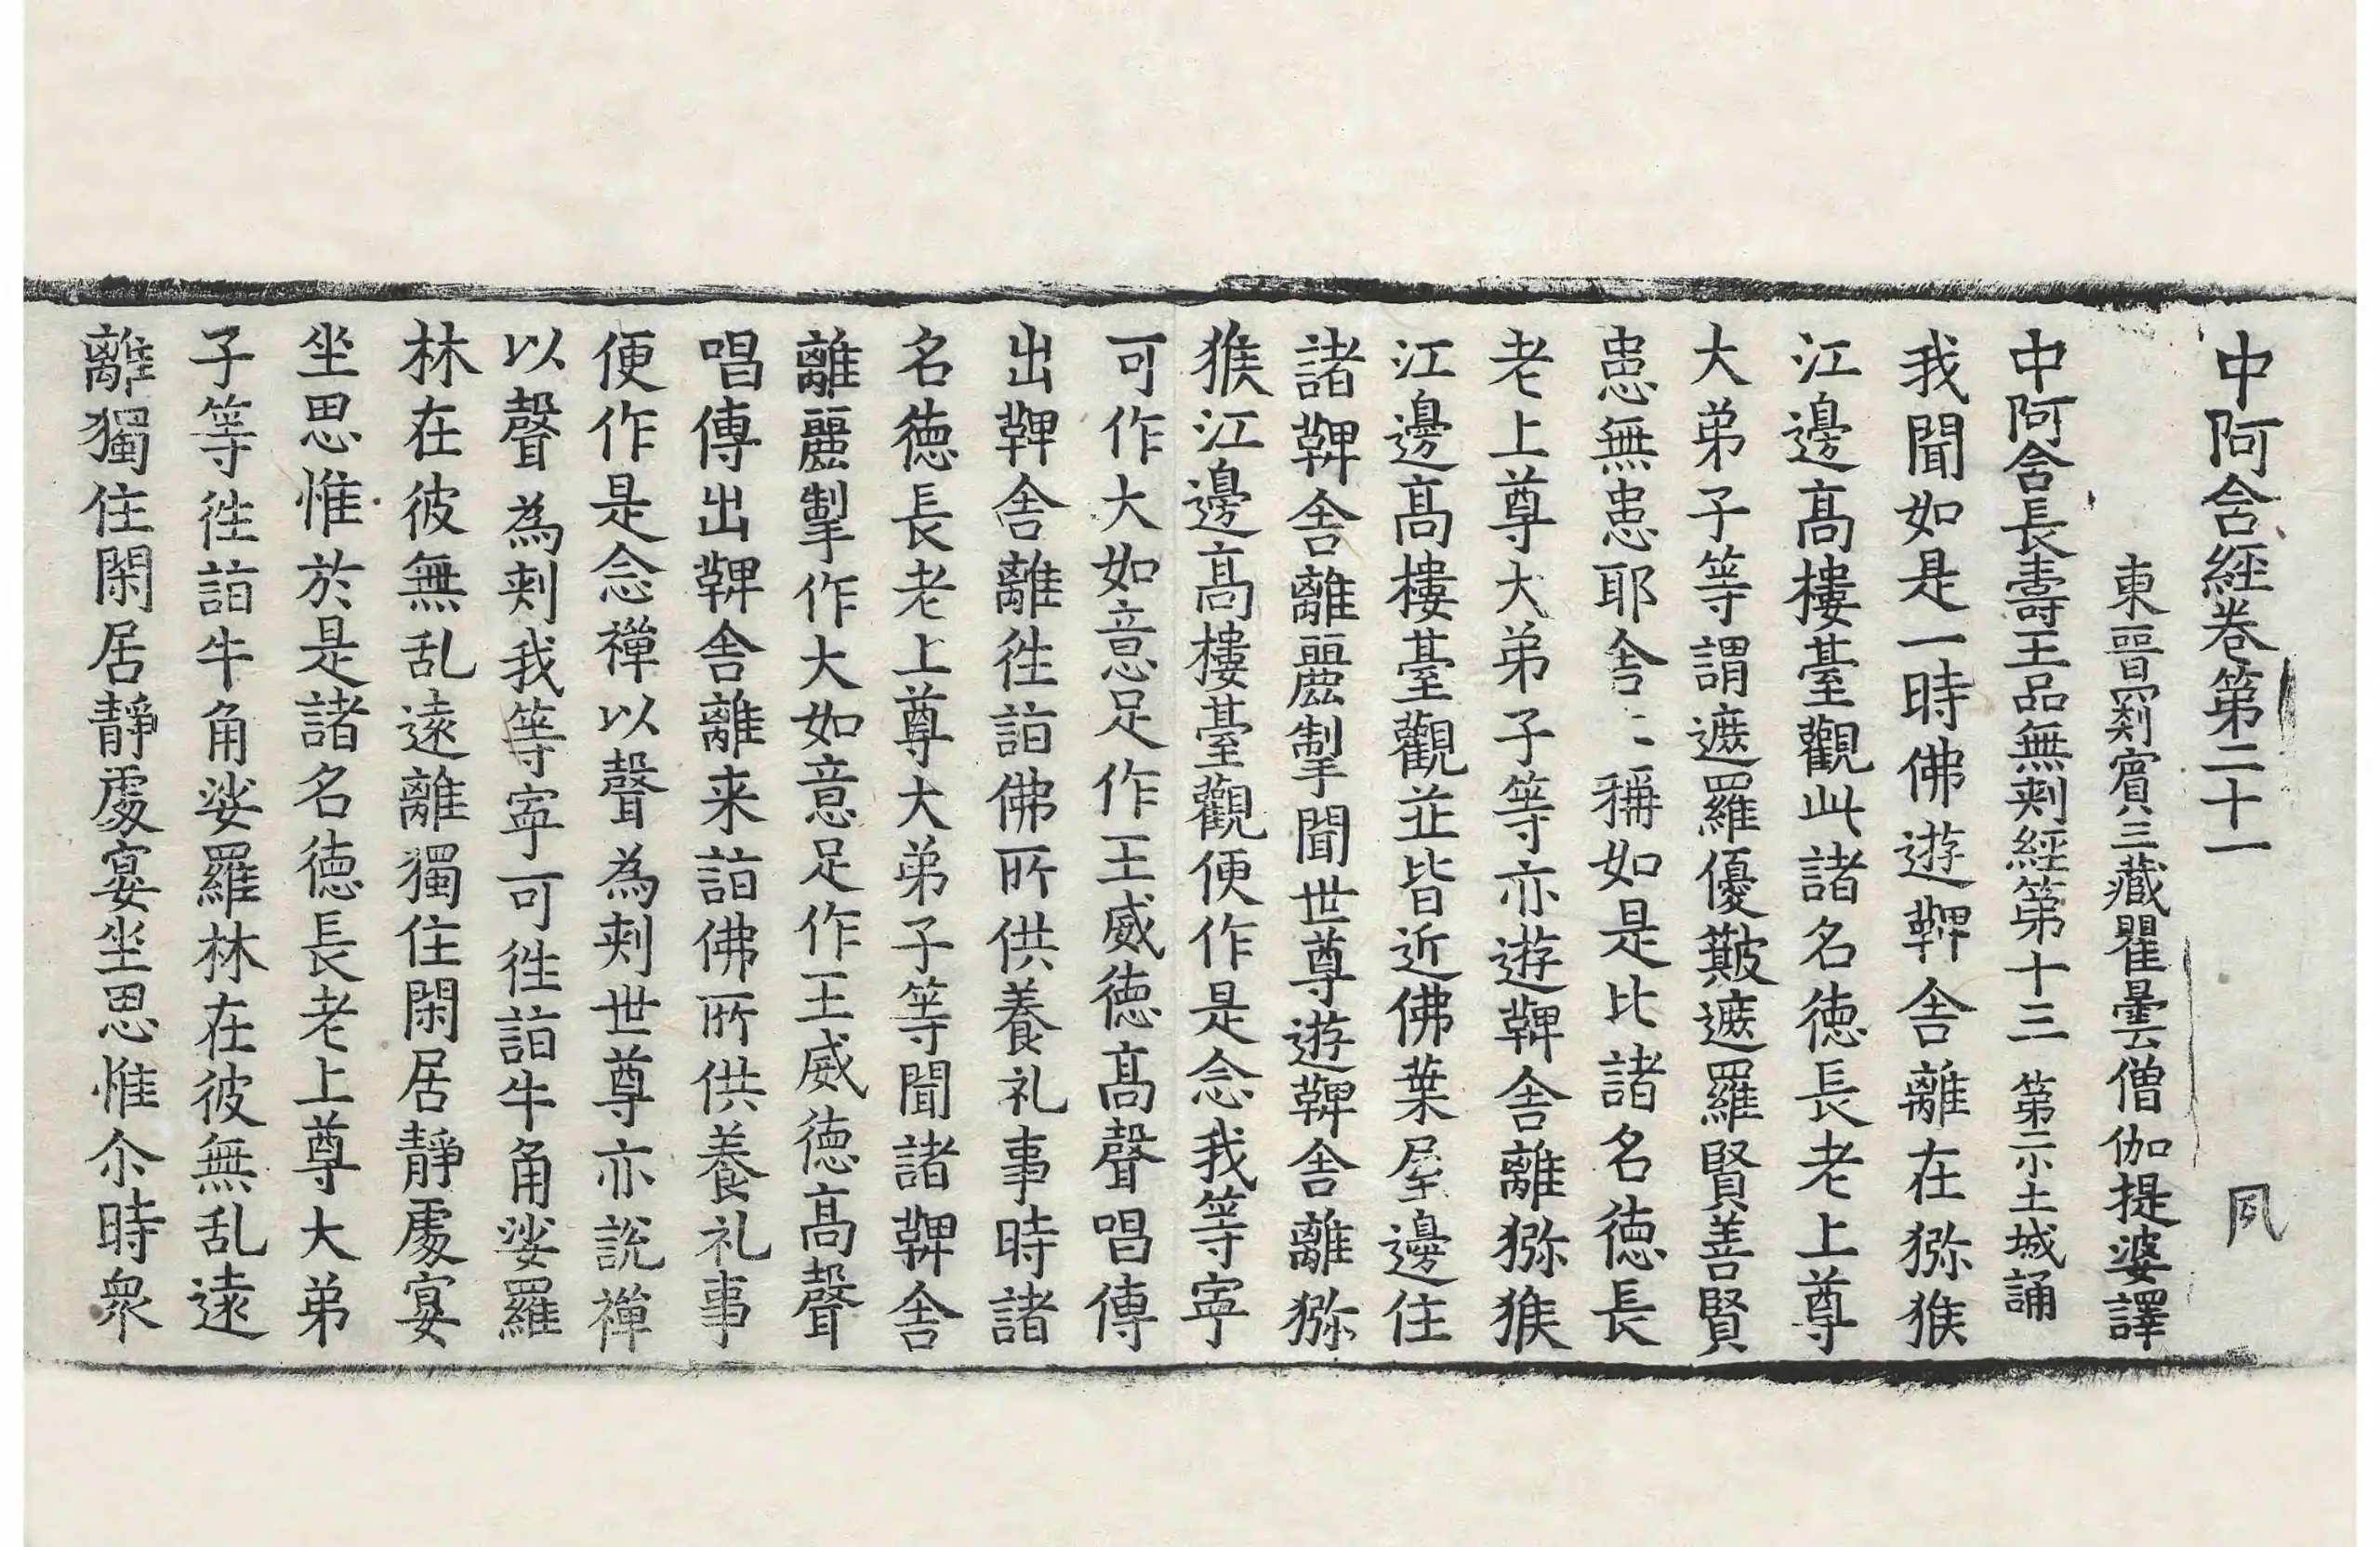 中阿含經卷第二十一 夙
東晉罽賓三藏瞿曇僧伽提婆譯
中阿含長壽王品無刾經第十三 第二小土城誦
我聞如是一時佛遊鞞舍離在獼猴
江邊髙樓臺觀此諸名徳長老上尊
大弟子等謂遮羅優簸遮羅賢善賢
患無患耶舍〻稱如是比諸名徳長
老上尊大弟子等亦遊鞞舍離獼猴
江邊髙樓臺觀並皆近佛葉屋邊住
諸鞞舍離麗掣聞世尊遊鞞舍離獼
猴江邊髙樓臺觀便作是念我等寧
可作大如意足作王威徳髙聲唱傳
出鞞舍離徃詣佛所供養礼事時諸
名徳長老上尊大弟子等聞諸鞞舍
離麗掣作大如意足作王威徳髙聲
唱傳出鞞舍離来詣佛所供養礼事
便作是念禪以聲為刾世尊亦說禪
以聲為刾我等寧可徃詣牛角娑羅
林在彼無乱遠離獨住閑居靜處宴
坐思惟於是諸名徳長老上尊大弟
子等徃詣牛角娑羅林在彼無乱遠
離獨住閑居靜處宴坐思惟尒時衆